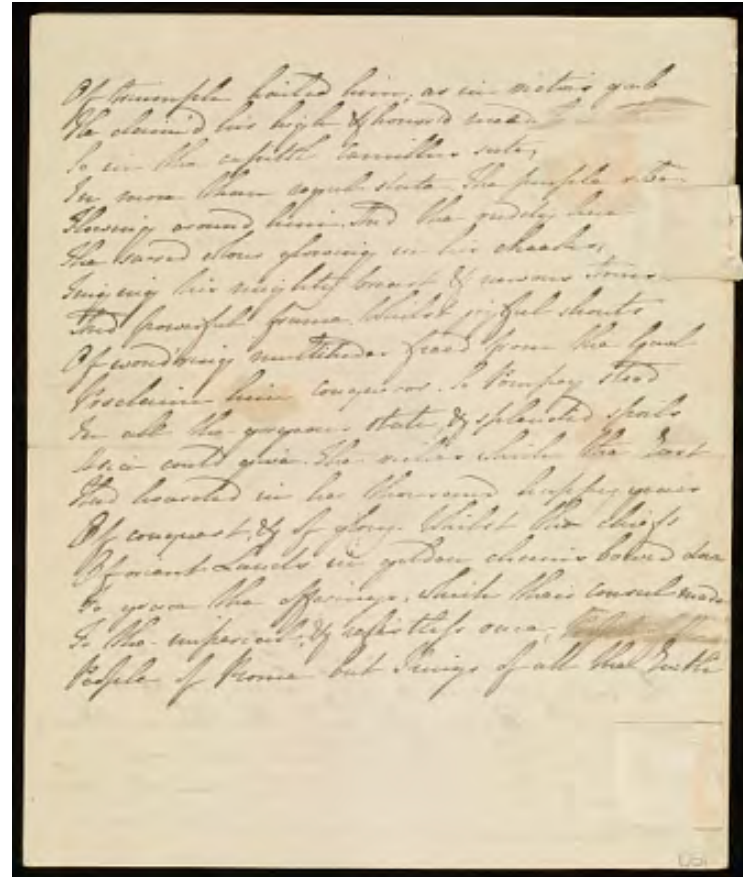 Of triumph hailed him, as in victor's garb
He claim'd his high & honor'd meed
So in the capitol Camillus sate,
In more than regal state. The purple robe
Flowing around him. And the ruddy hue
The sacred colour glowing in his cheeks,
Tinging his mighty breast & nervous
And powerful frame. Whilst joyful shouts
Of wondering multitudes freed from the Gaul
Proclaim him conqueror. So Pompey stood
In all the gorgeous state, & splendid spoils
Asia could give. The riches which the East
Had hoarded in her thousand happy years
Of conquest, & of glory. Whilst the chiefs
Of orient Lands in golden chains bowed low
To grace the offerings, which their consul made
To the imperial, & resistless once,
People of Rome but Kings of all the Earth
1051